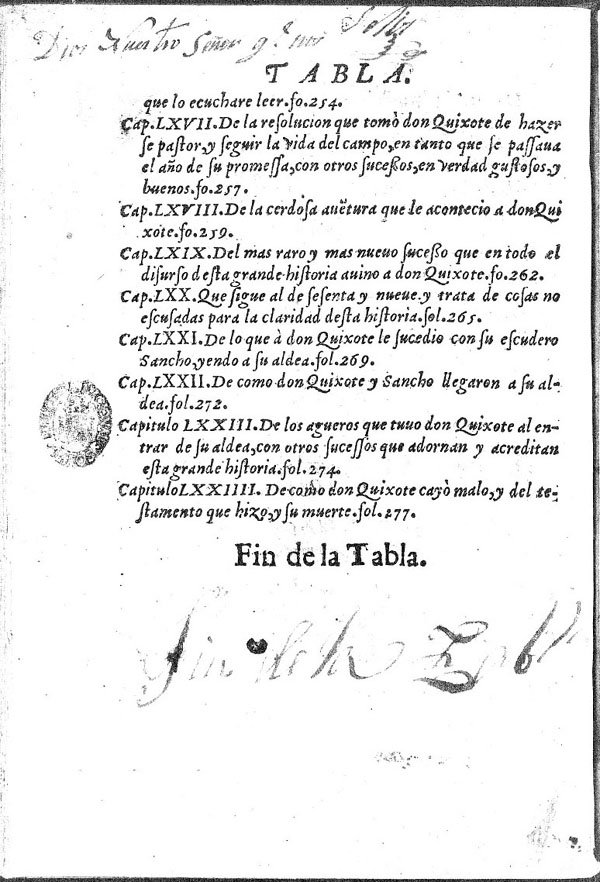 Dios Nuestro Señor q.e nos
TABLA.
que lo ecuchare leer.fo.254.
Cap.LXVII.De la resolucion que tomò don Quixote de hazer
se pastor,y seguir la vida del campo,en tanto que se passaua
el año de su promessa,con otros sucessos,en verdad gustosos,y
buenos.fo.257.
Cap.LXVIII.De la cerdosa auētura que le acontecio a don Qui
xote.fo.259.
Cap.LXIX.Del mas raro y mas nueuo sucesso que en todo el
disurso desta grande historia auino a don Quixote.fo.262.
Cap.LXX.Que sigue al de sesenta y nueue.y trata de cosas no
escusadas para la claridad desta historia.fol.265.
Cap.LXXI.De lo que à don Quixote le sucedio con su escudero
Sancho,yendo a su aldea.fol.269.
Cap.LXXII.De como don Quixote y Sancho llegaron a su al-
dea.fol.272.
Capitulo LXXIII.De los agueros que tuuo don Quixote al en-
trar de su aldea,con otros sucessos que adornan y acreditan
esta grande historia.fol.274.
Capitulo LXXIIII. De como don Quixote cayò malo,y del te-
stamento que hizo,y su muerte.fol.277.
Fin de la Tabla.
Fin de la